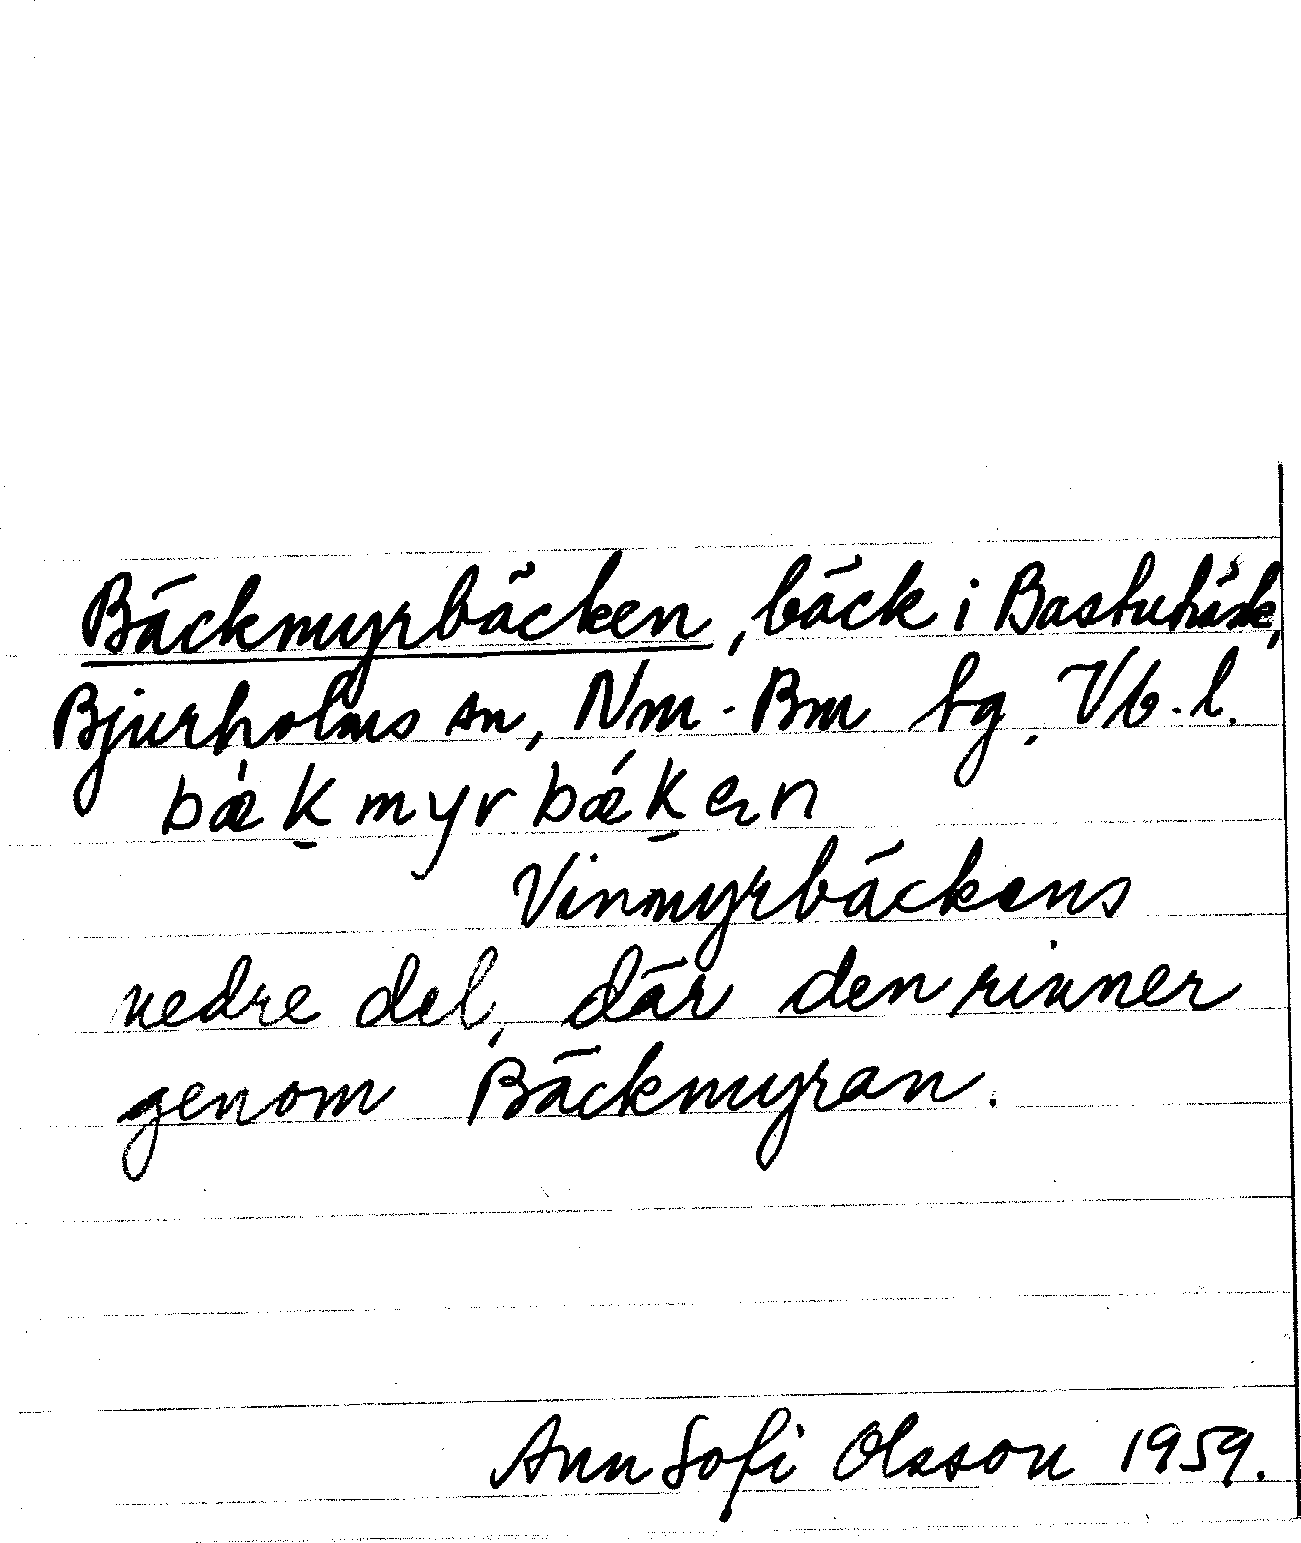 Bäckmyrbäcken, bäck i Bastuträsk,
Bjurholms sn, Nm-Bm tg. Vb.l.
bæ̀k̠myrbǽk̠en
Vinmyrbäckens
nedre del, där den rinner
genom Bäckmyran.
Ann Sofi Olsson 1959.